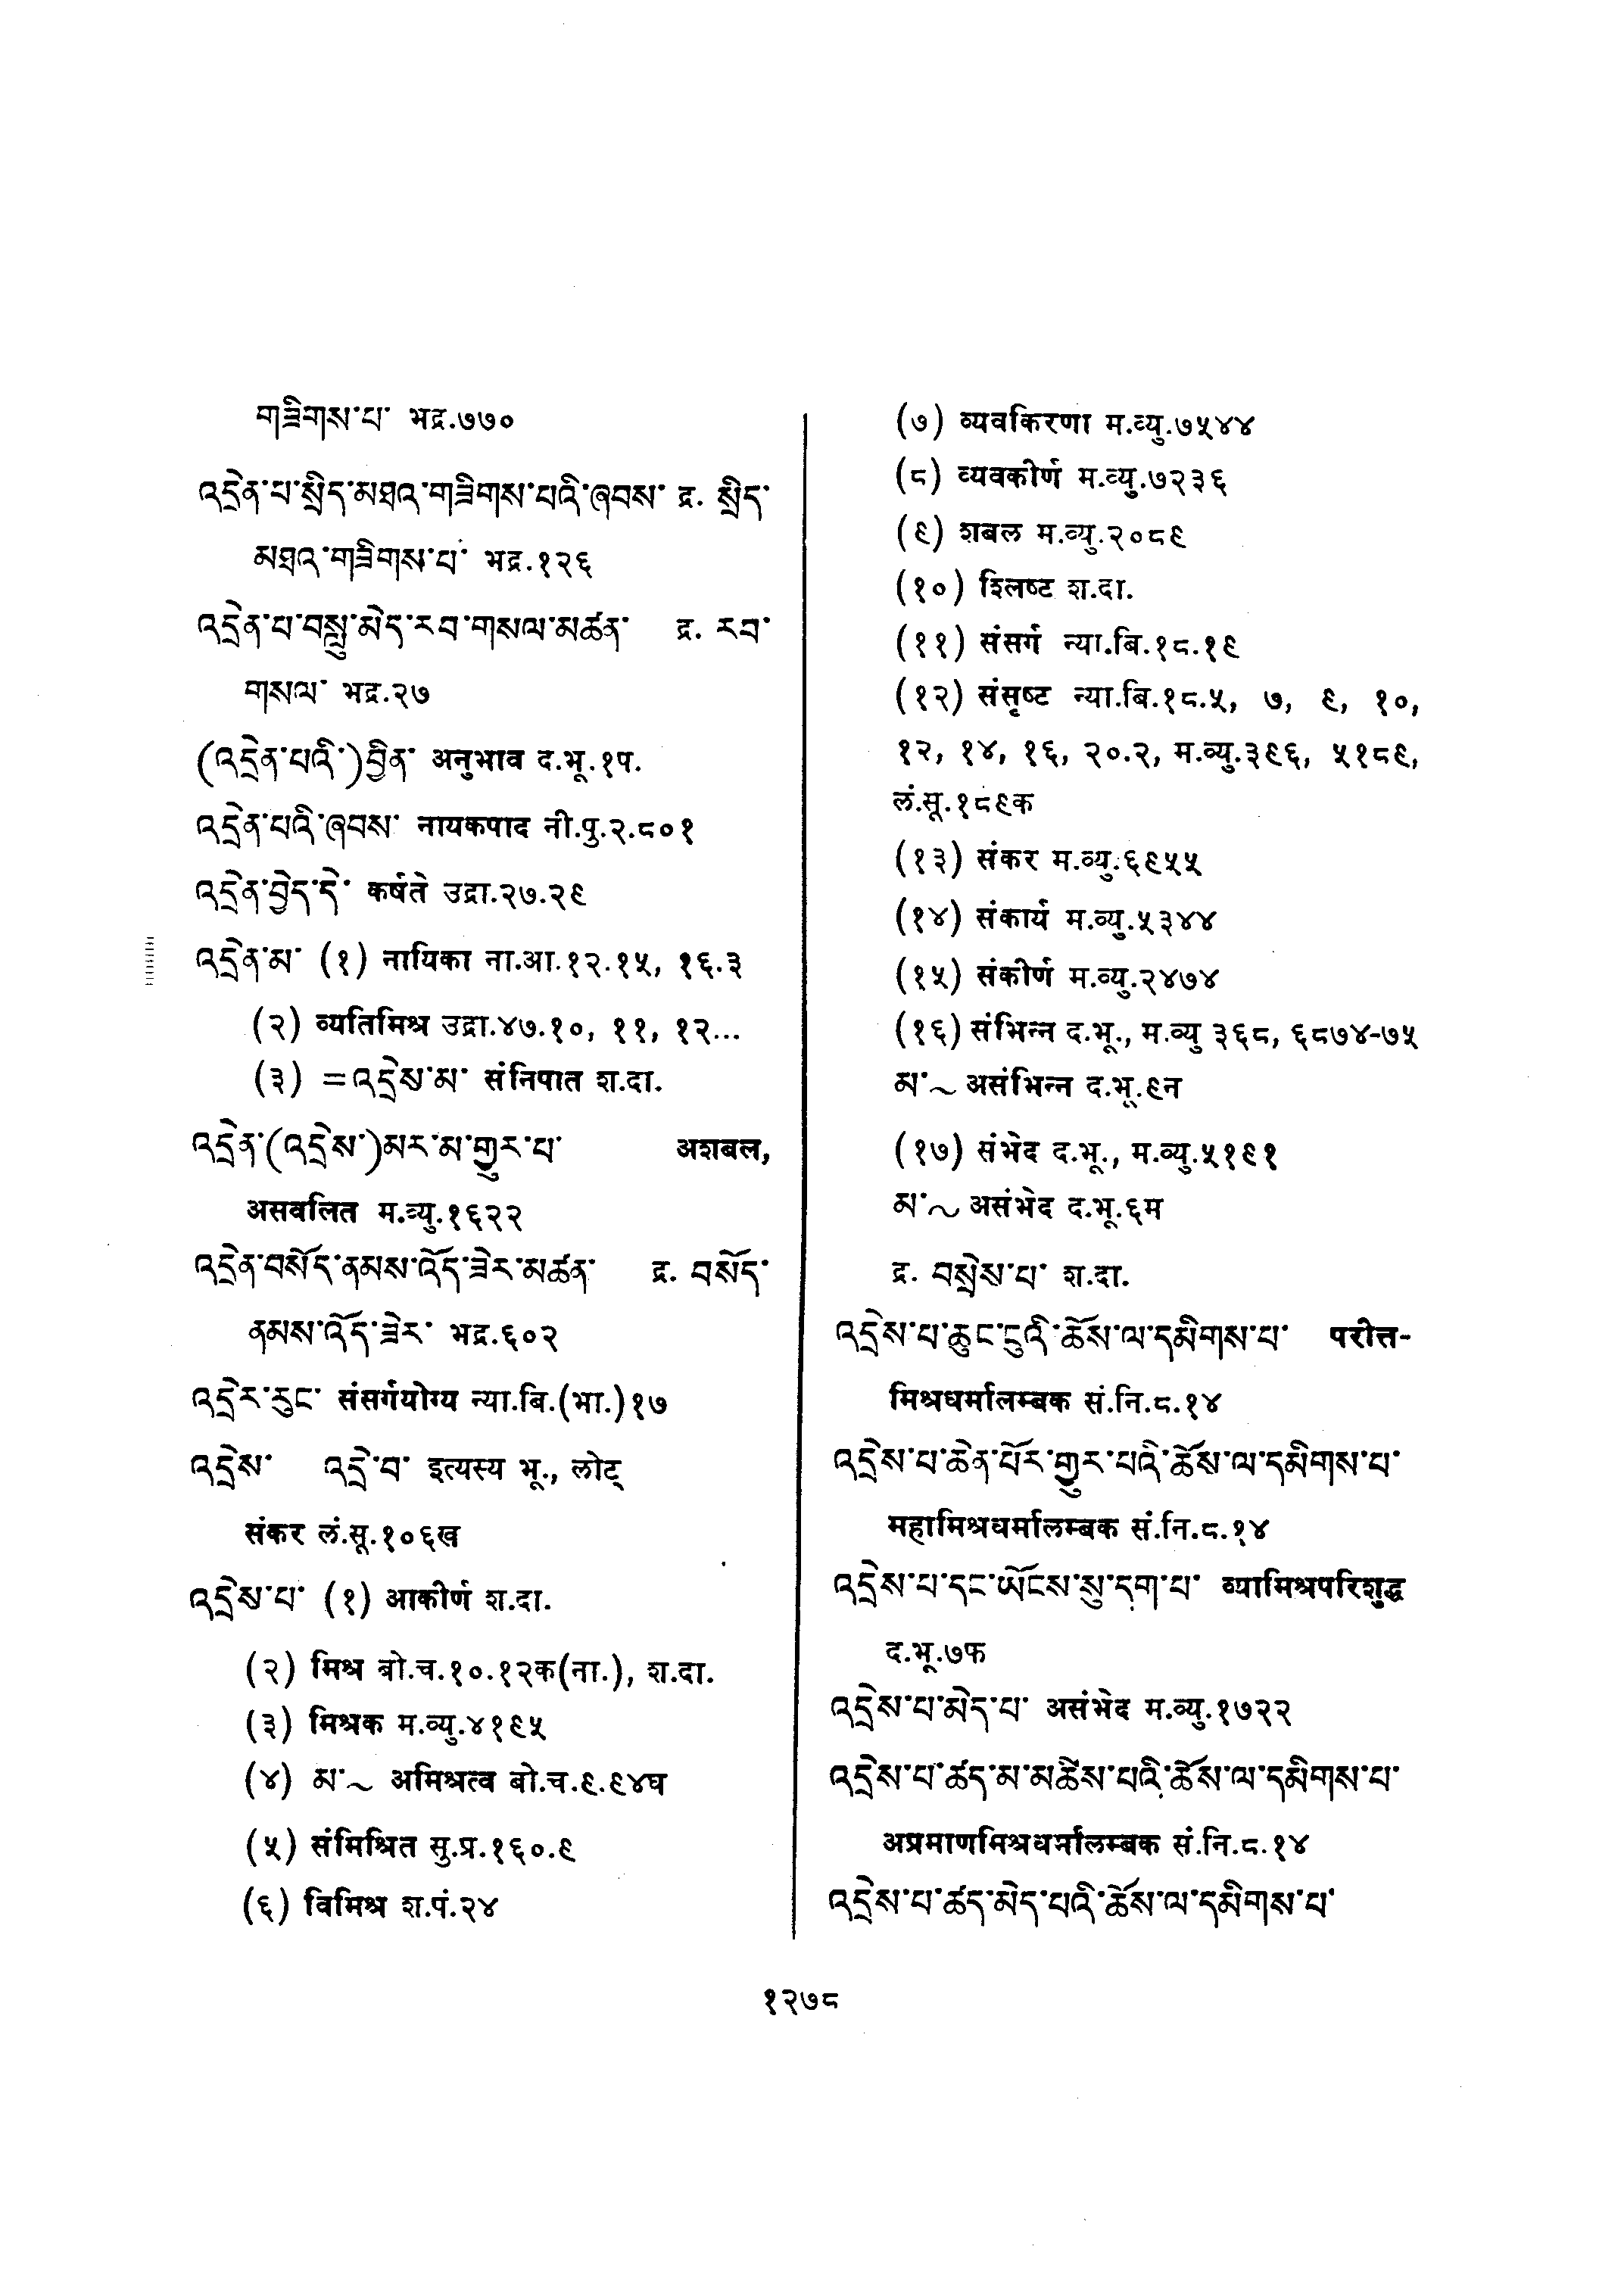 གཟིགས་པ་ भद्र.७७०
འདྲེན་པ་སྲིད་མཐའ་གཟིགས་པའི་ཞབས་ द्र. སྲིད་
མཐའ་གཟིགས་པ་ भद्र.१२६
འདྲེན་པ་བསླུ་མེད་རབ་གསལ་མཚན་ द्र. རབ་
གསལ་ भद्र.२७
(འདྲེན་པའི་)བྱིན་ अनुभाव द.भू.१प.
འདྲེན་པའི་ཞབས་ नायकपाद नी.पु.२.८०१
འདྲེན་བྱེད་དེ་ कर्षते उद्रा.२७.२९
འདྲེན་མ་ (१) नायिका ना.आ.१२.१५, १६.३
(२) व्यतिमिश्र उद्रा.४७.१०, ११, १२...
(३) =འདྲེས་མ་ संनिपात श.दा.
འདྲེན་(འདྲེས་)མར་མ་གྱུར་པ་ अशबल,
असवलित म.व्यु.१६२२
འདྲེན་བསོད་ནམས་འོད་ཟེར་མཚན་ द्र. བསོད་
ནམས་འོད་ཟེར་ भद्र.६०२
འདྲེར་རུང་ संसर्गयोग्य न्या.बि.(भा.)१७
འདྲེས་ འདྲེ་བ་ इत्यस्य भू., लोट्
संकर लं.सू.१०६ख
འདྲེས་པ་ (१) आकीर्ण श.दा.
(२) मिश्र बो.च.१०.१२क(ना.), श.दा.
(३) मिश्रक म.व्यु.४१९५
(४) མ་~ अमिश्रत्व बो.च.९.९४घ
(५) संमिश्रित सु.प्र.१६०.९
(६) विमिश्र श.पं.२४
(७) व्यवकिरणा म.व्यु.७५४४
(८) व्यवकीर्ण म.व्यु.७२३६
(९) शबल म.व्यु.२०८९
(१०) श्लिष्ट श.दा.
(११) संसर्ग न्या.बि.१८.१९
(१२) संसृष्ट न्या.बि.१८.५, ७, ९, १०,
१२, १४, १६, २०.२, म.व्यु.३९६, ५१८९,
लं.सू.१८९क
(१३) संकर म.व्यु.६९५५
(१४) संकार्य म.व्यु.५३४४
(१५) संकीर्ण म.व्यु.२४७४
(१६) संभिन्न द.भू., म.व्यु ३६८, ६८७४-७५
མ་~ असंभिन्न द.भू.९न
(१७) संभेद द.भू., म.व्यु.५१९१
མ་~ असंभेद द.भू.६म
द्र. བསྲེས་པ་ श.दा.
འདྲེས་པ་ཆུང་ངུའི་ཆོས་ལ་དམིགས་པ་ परीत्त-
मिश्रधर्मालम्बक सं.नि.८.१४
འདྲེས་པ་ཆེན་པོར་གྱུར་པའི་ཆོས་ལ་དམིགས་པ་
महामिश्रधर्मालम्बक सं.नि.८.१४
འདྲེས་པ་དང་ཡོངས་སུ་དག་པ་ व्यामिश्रपरिशुद्ध
द.भू.७फ
འདྲེས་པ་མེད་པ་ असंभेद म.व्यु.१७२२
འདྲེས་པ་ཚད་མ་མཆིས་པའི་ཆོས་ལ་དམིགས་པ་
अप्रमाणमिश्रधर्मालम्बक सं.नि.८.१४
འདྲེས་པ་ཚད་མེད་པའི་ཆོས་ལ་དམིགས་པ་
१२७८